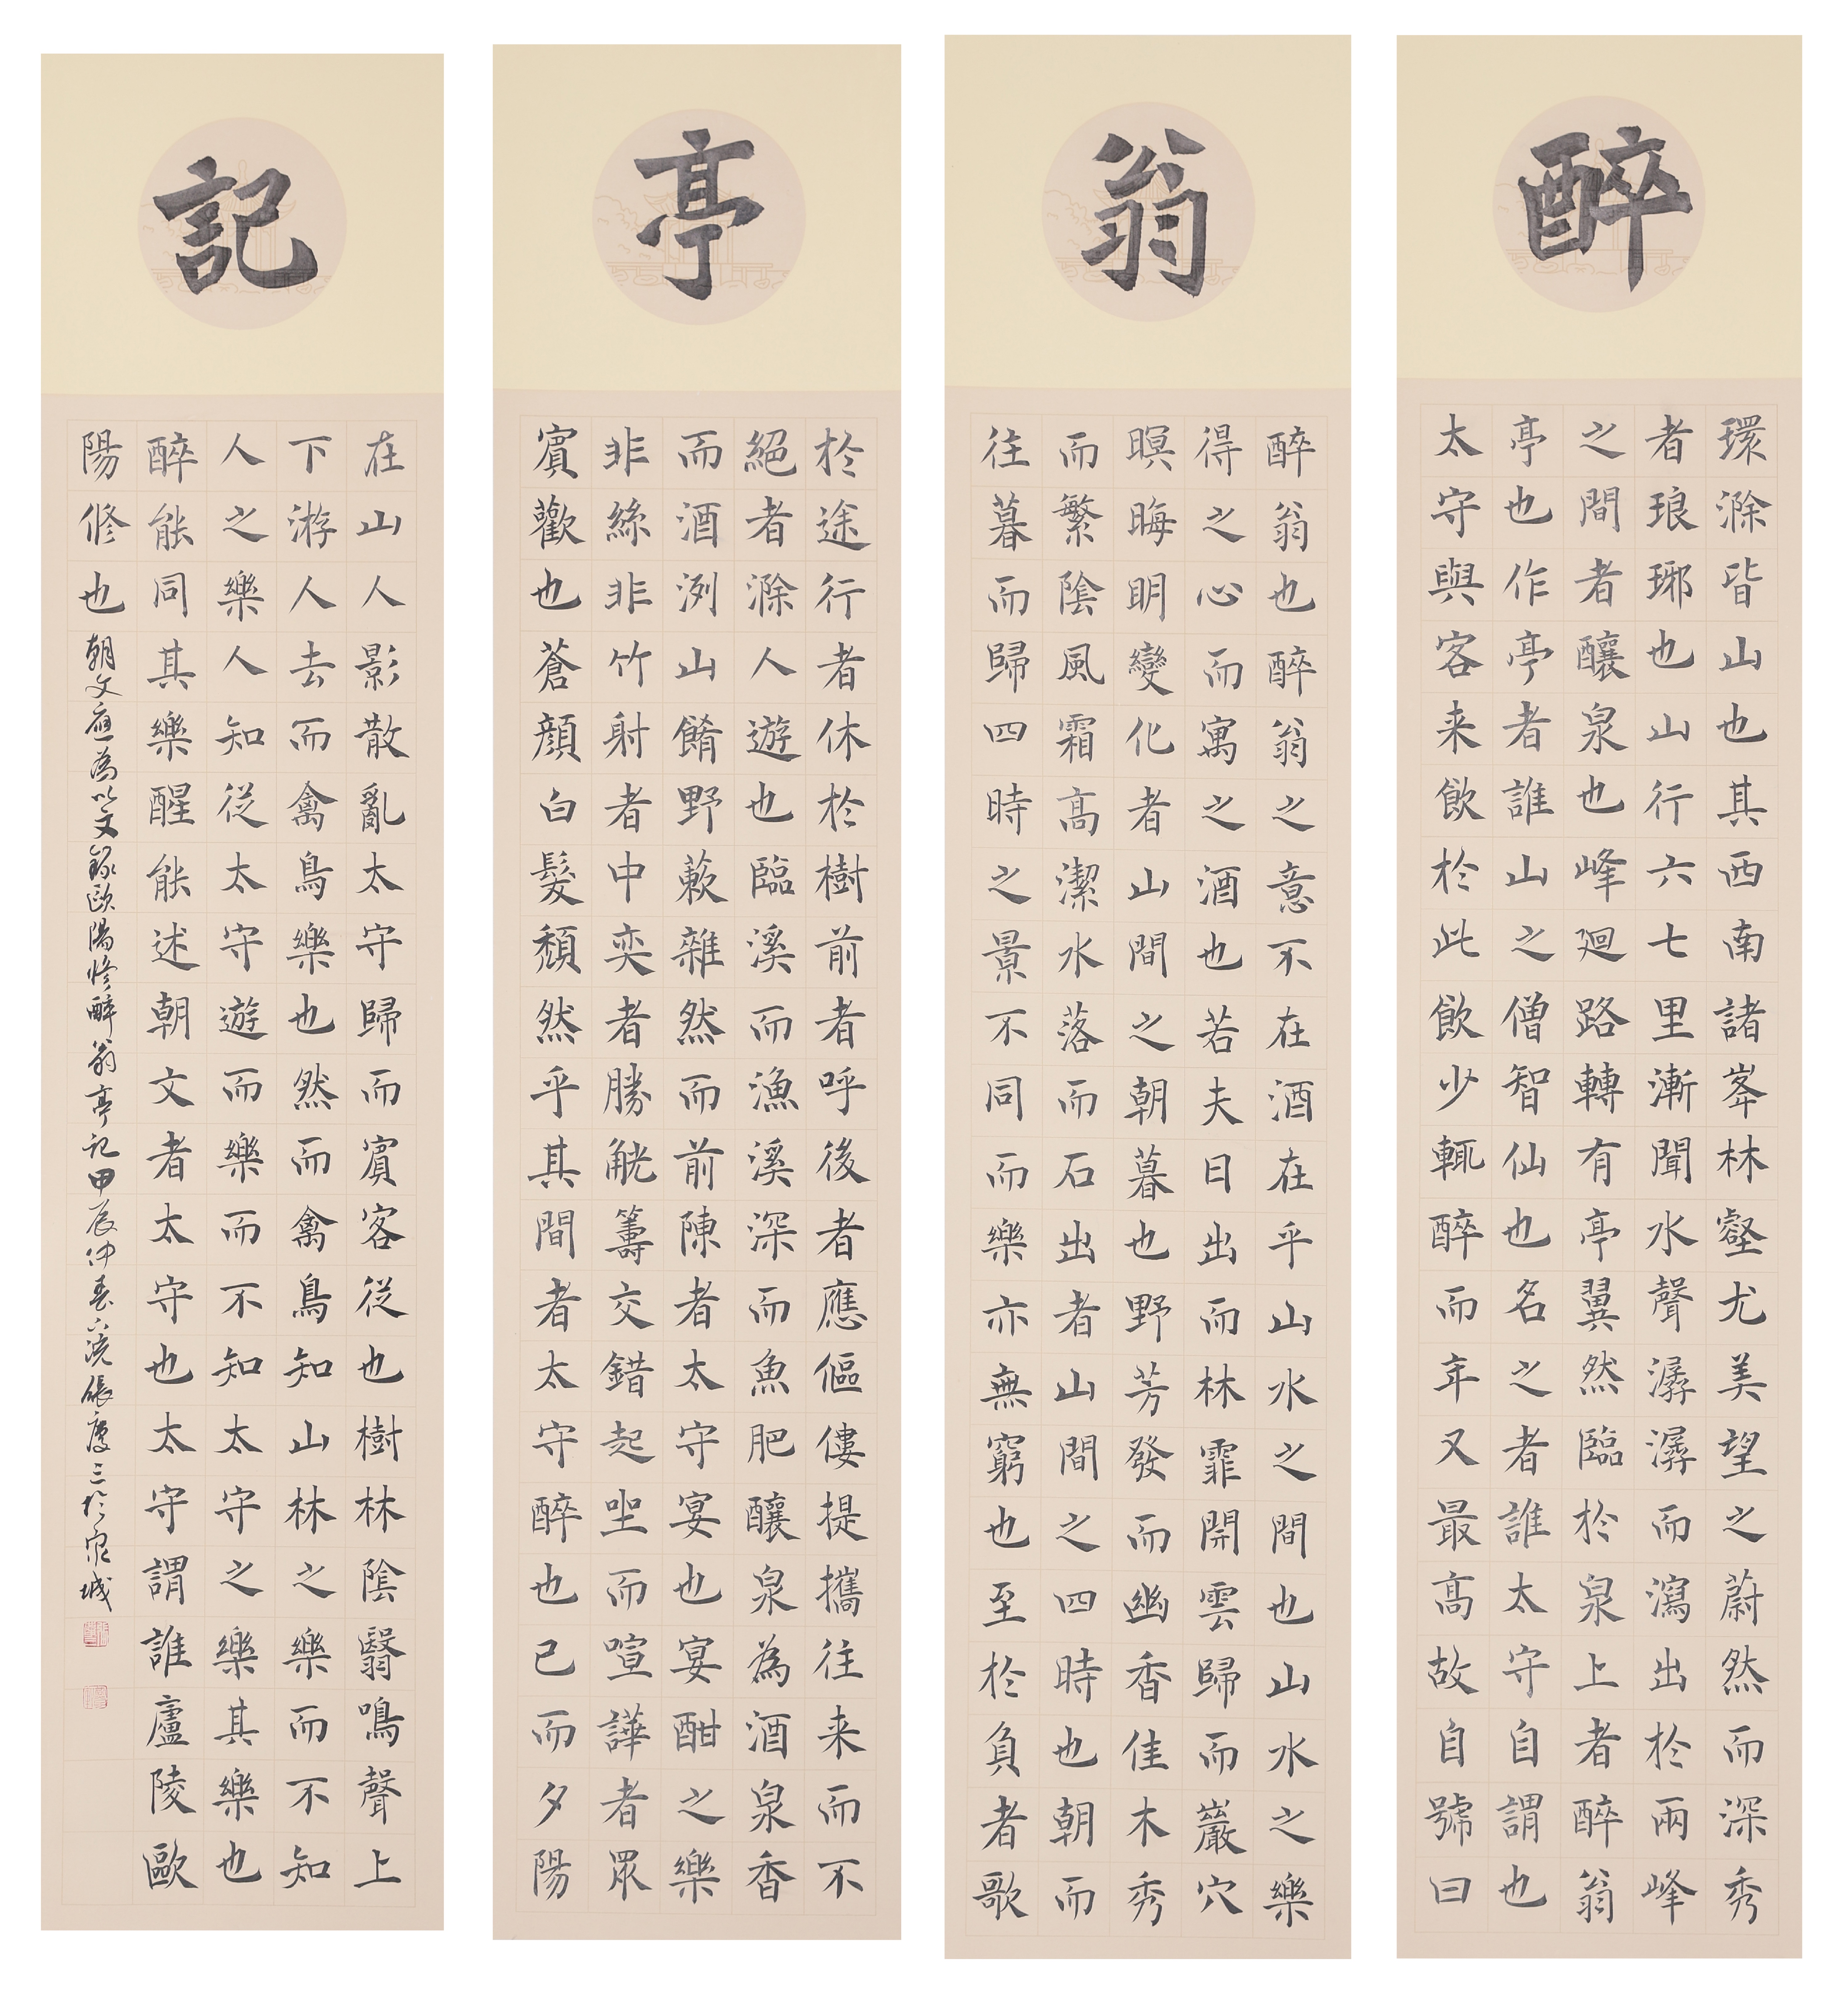 醉
環滁皆山也其西南諸峯林壑尤美望之蔚然而深秀
者琅琊也山行六七里漸聞水聲潺潺而瀉出於兩峰
之間者釀泉也峰迴路轉有亭翼然臨於泉上者醉翁
亭也作亭者誰山之僧智仙也名之者誰太守自謂也
太守與客来飲於此飲少輒醉而年又最高故自號曰
翁
醉翁也醉翁之意不在酒在乎山水之間也山水之樂
得之心而寓之酒也若夫日出而林霏開雲歸而巖穴
暝晦明變化者山間之朝暮也野芳發而幽香佳木秀
而繁陰風霜高潔水落而石出者山間之四時也朝而
往暮而歸四時之景不同而樂亦無窮也至於負者歌
亭
於途行者休於樹前者呼後者應傴僂提攜往来而不
絕者滁人遊也臨溪而漁溪深而魚肥釀泉為酒泉香
而酒洌山餚野蔌雜然而前陳者太守宴也宴酣之樂
非絲非竹射者中奕者勝觥籌交錯起坐而喧譁者眾
賓歡也蒼顏白髮頹然乎其間者太守醉也已而夕陽
記
在山人影散亂太守歸而賓客從也樹林陰翳鳴聲上
下游人去而禽鳥樂也然而禽鳥知山林之樂而不知
人之樂人知從太守遊而樂而不知太守之樂其樂也
醉能同其樂醒能述朝文者太守也太守謂誰廬陵歐
陽修也 朝文應為以文錄歐陽修醉翁亭記甲辰仲春浣張慶三於泉城